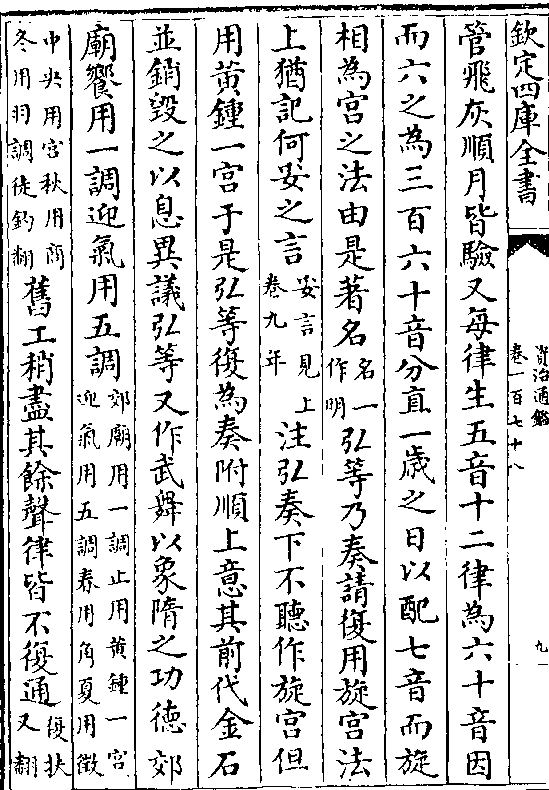 欽定四庫全書
資治通鑑
卷一百七十八
九
管飛灰順月皆驗又每律生五音十二律為六十音因
而六之為三百六十音分直一歲之日以配七音而旋
相為宮之法由是著名名一作明弘等乃奏請復用旋宮法
上猶記何妥之言妥言見上卷九年注弘奏下不聽作旋宮但
用黄鍾一宮于是弘等復為奏附順上意其前代金石
並銷毀之以息異議弘等又作武舞以象隋之功德郊
廟饗用一調迎氣用五調郊廟用一調止用黄鍾一宮迎氣用五調春用角夏用徵
中央用宮秋用商冬用羽調徒釣翻舊工稍盡其餘聲律皆不復通復扶又翻